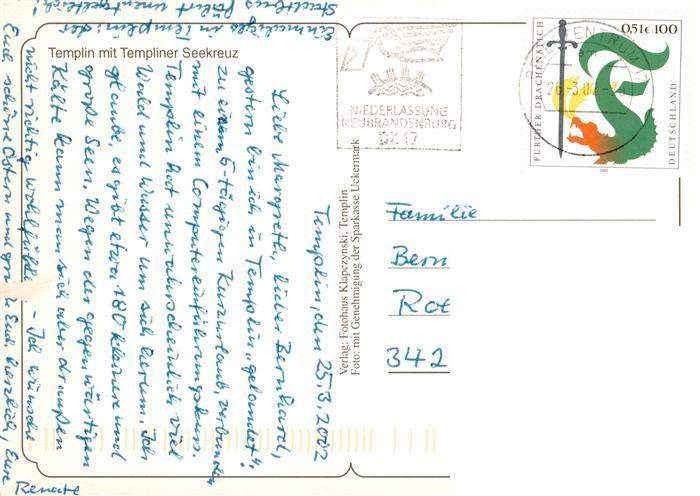 Templin mit Templiner Seekreuz
Templin, den 25.3.2002
Liebe Margreth, lieber Bernhard,
gestern bin ich in Templin „gelandet“,
zu einem 5-tägigen Kurzurlaub, verbunden
mit einem Computereinführungskurs.
Templin hat unwahrscheinlich viel
Wald und Wasser um sich herum. Ich
glaube, es gibt etwa 180 kleinere und
große Seen. Wegen der gegenwärtigen
Kälte kann man sich aber draußen
nicht richtig wohlfühlen. - Ich wünsche
Euch schöne Ostern und grüße Euch herzlich, Eure
Renate
in Templin; der
Verlag: Fotohaus Klapczynski, Templin
Foto: mit Genehmigung der Sparkasse Uckermark
NIEDERLASSUNG
NEUBRANDENBURG
FURTHER DRACHENSTICH
0,51€ 100
DEUTSCHLAND
2001
BRIEFZENTRUM 17
Familie
Bern
Roe
342